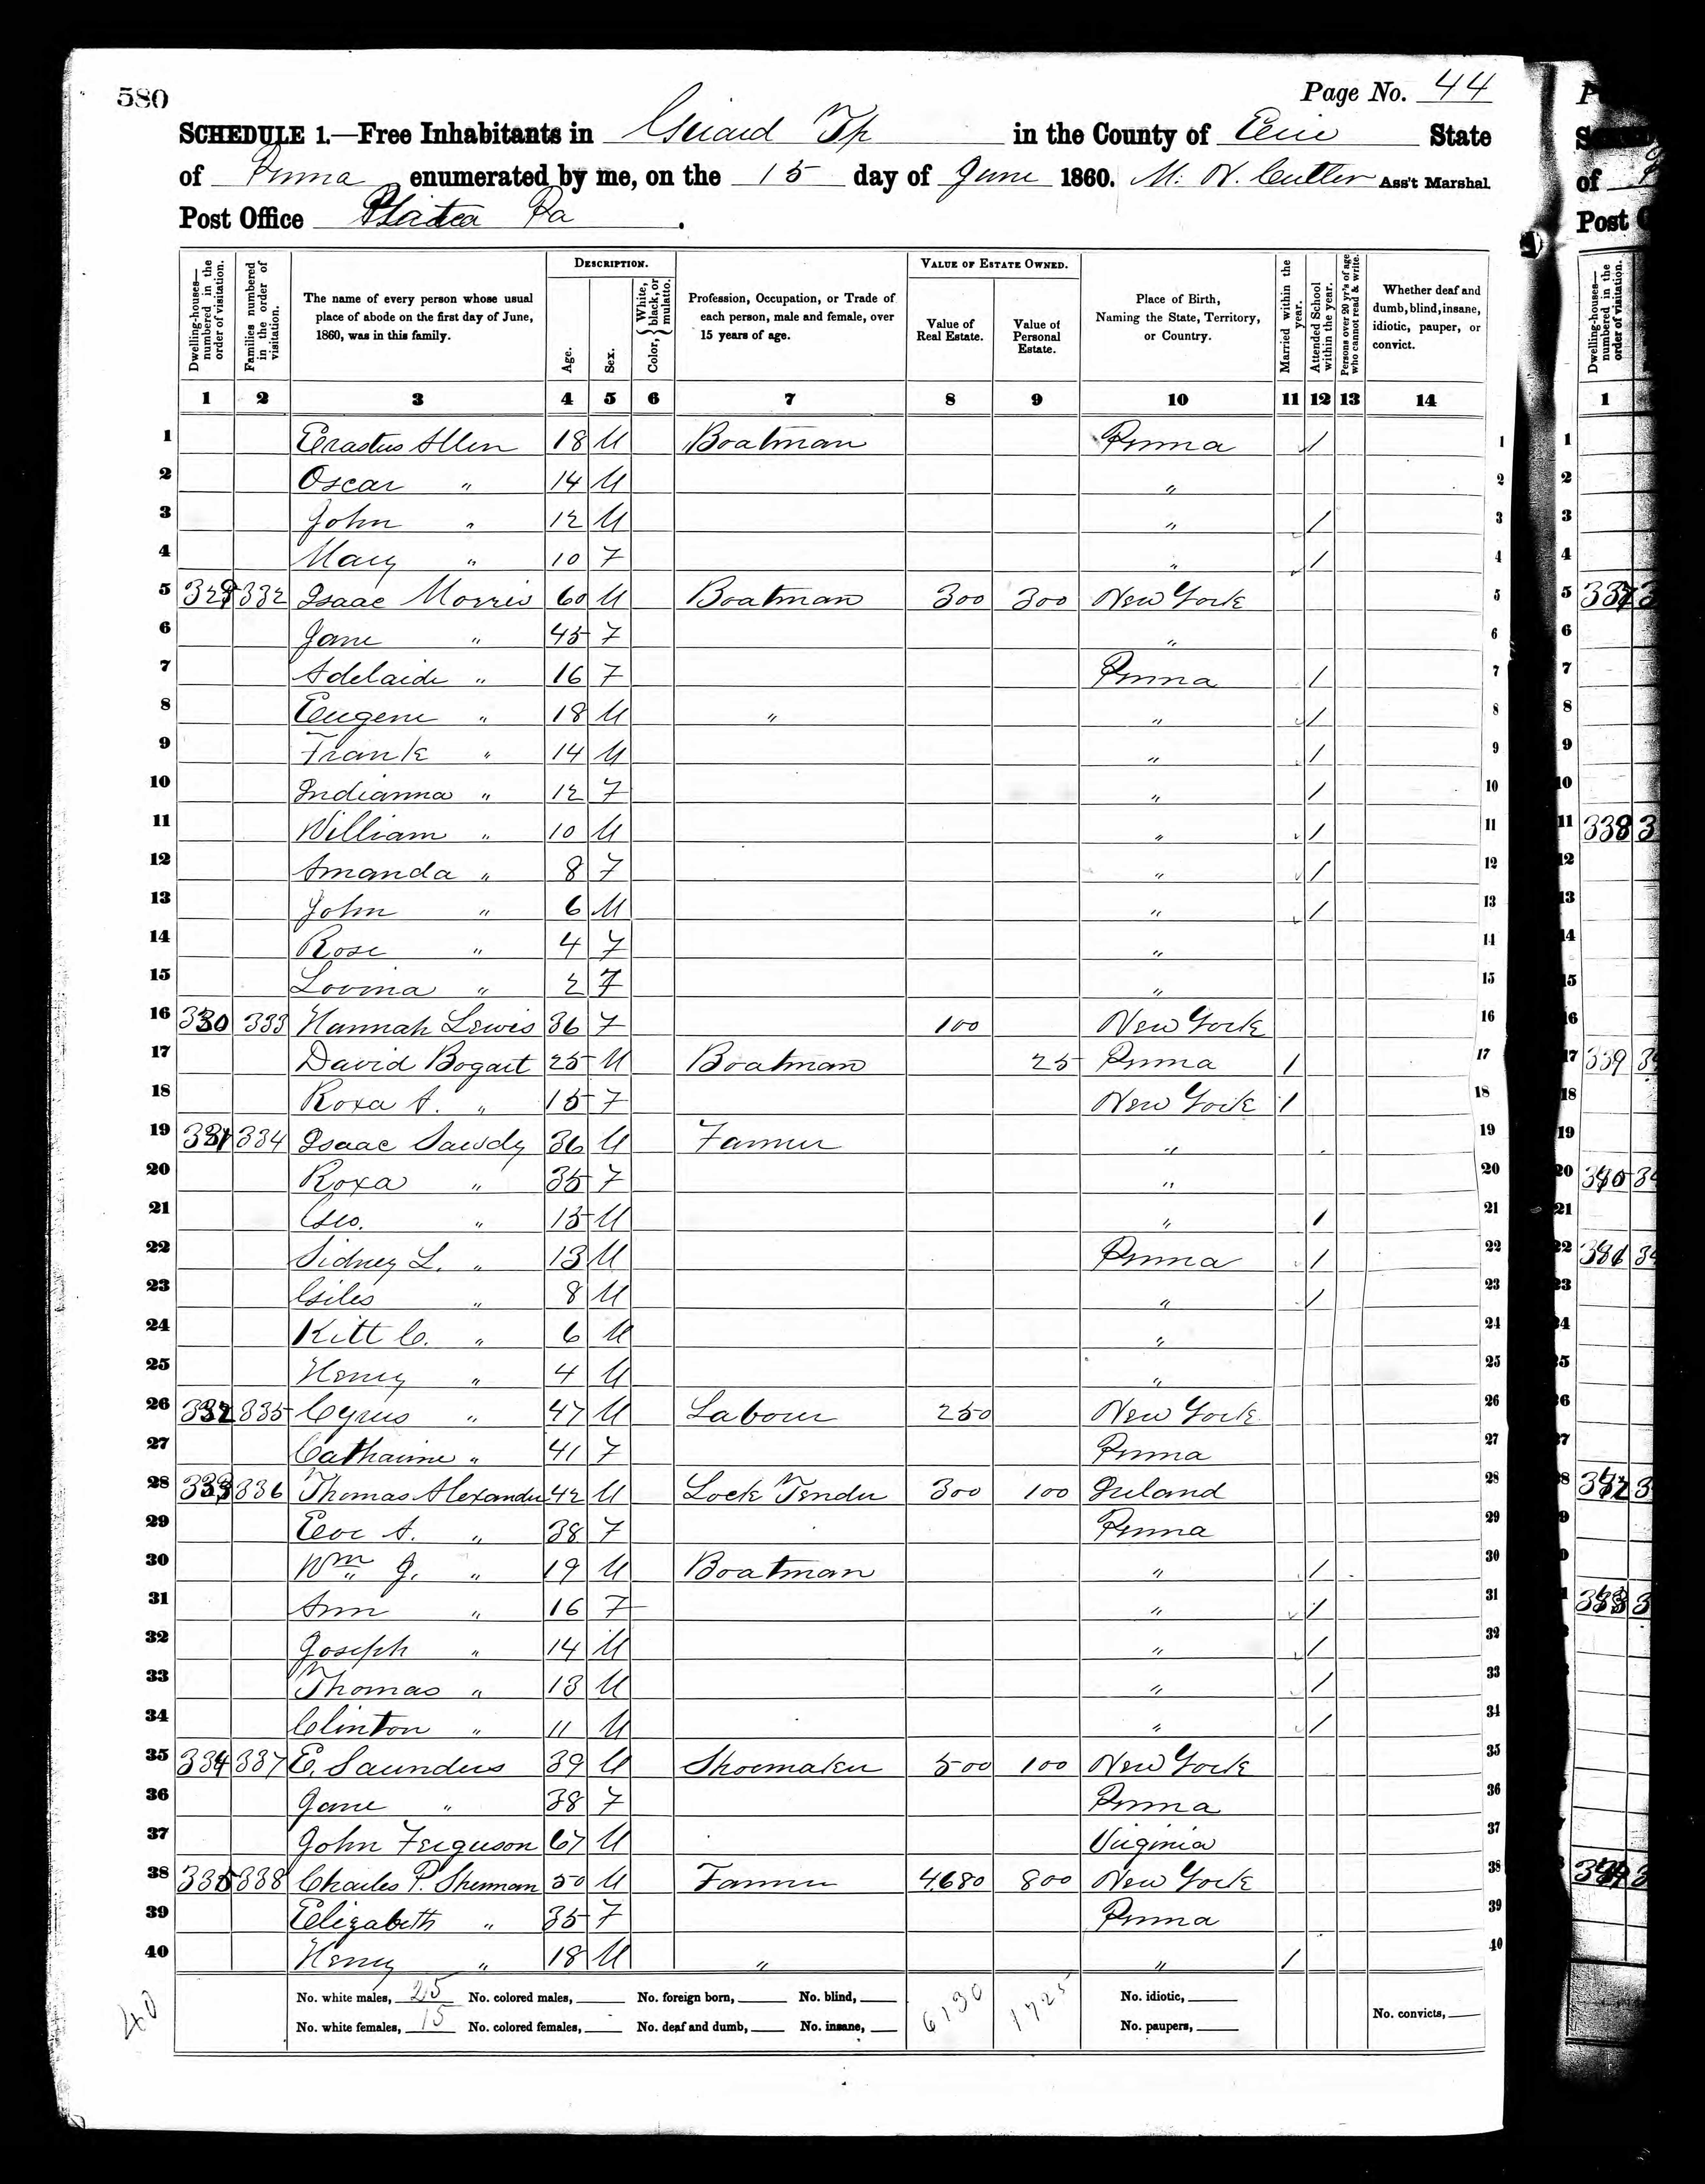 580
Page No. 44
SCHEDULE 1.—Free Inhabitants in Girard Tp in the County of Erie State
of Penna enumerated by me, on the 15 day of June 1860. M. N. Cutler Ass't Marshal.
Post Office Platea Pa .
Dwelling-houses—numbered in the order of visitation. Families numbered in the order of visitation. The name of every person whose usual place of abode on the first day of June, 1860, was in this family. DESCRIPTION. Age. Sex. Color, { White, black, or mulatto. Profession, Occupation, or Trade of each person, male and female, over 15 years of age. VALUE OF ESTATE OWNED. Value of Real Estate. Value of Personal Estate. Place of Birth, Naming the State, Territory, or Country. Married within the year. Attended School within the year. Persons over 20 yr's of age who cannot read & write. Whether deaf and dumb, blind, insane, idiotic, pauper, or convict.
1 2 3 4 5 6 7 8 9 10 11 12 13 14
1 Erastus Allen 18 M Boatman Penna / 1
2 Oscar " 14 M " 2
3 John " 12 M " / 3
4 Mary " 10 F " / 4
5 329 332 Isaac Morris 60 M Boatman 300 300 New York 5
6 Jane " 45 F " 6
7 Adelaide " 16 F Penna / 7
8 Eugene " 18 M " " / 8
9 Frank " 14 M " / 9
10 Indianna " 12 F " / 10
11 William " 10 M " / 11
12 Amanda " 8 F " / 12
13 John " 6 M " / 13
14 Rose " 4 F " 14
15 Lovina " 2 F " 15
16 330 333 Hannah Lewis 36 F 100 New York 16
17 David Bogart 25 M Boatman 25 Penna 1 17
18 Roxa A. " 15 F New York 1 18
19 331 334 Isaac Sawdy 36 M Farmer " 19
20 Roxa " 35 F " 20
21 Geo. " 15 M " / 21
22 Sidney L. " 13 M Penna / 22
23 Giles " 8 M " / 23
24 Kitt C. " 6 M " 24
25 Henry " 4 M " 25
26 332 335 Cyrus " 47 M Labour 250 New York 26
27 Catharine " 41 F Penna 27
28 333 336 Thomas Alexander 42 M Lock Tender 300 100 Ireland 28
29 Eve A. " 38 F Penna 29
30 Wm G. " 19 M Boatman " / 30
31 Ann " 16 F " / 31
32 Joseph " 14 M " / 32
33 Thomas " 13 M " / 33
34 Clinton " 11 M " / 34
35 334 337 E. Saunders 39 M Shoemaker 500 100 New York 35
36 Jane " 38 F Penna 36
37 John Ferguson 67 M Virginia 37
38 335 338 Charles P. Sherman 50 M Farmer 4680 800 New York 38
39 Elizabeth " 35 F Penna 39
40 Henry " 18 M " " 1 40
No. white males, 25 No. colored males, No. foreign born, No. blind, 6130 1725 No. idiotic,
No. white females, 15 No. colored females, No. deaf and dumb, No. insane, No. paupers, No. convicts,
40